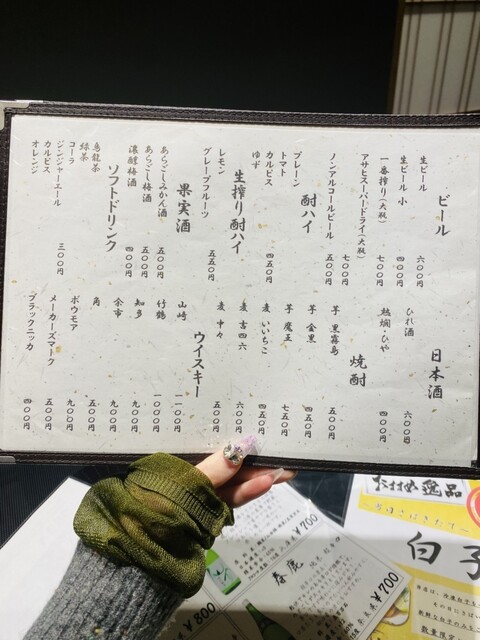 ビール
生ビール 六〇〇円
生ビール 小 四〇〇円
一番搾り(大瓶) 七〇〇円
アサヒスーパードライ(大瓶) 七〇〇円
ノンアルコールビール 五〇〇円
酎ハイ
プレーン
トマト
カルピス
ゆず 四五〇円
生搾り酎ハイ
レモン
グレープフルーツ 五五〇円
果実酒
あらごしみかん酒 五〇〇円
あらごし梅酒 五〇〇円
濃醇梅酒 四〇〇円
ソフトドリンク
烏龍茶
緑茶
コーラ
ジンジャーエール
カルピス
オレンジ 三〇〇円
日本酒
ひれ酒 六〇〇円
熱燗・ひや 四〇〇円
焼酎
芋 黒霧島 五〇〇円
芋 金黒 四五〇円
芋 魔王 七五〇円
麦 いいちこ 四五〇円
麦 吉四六 六〇〇円
麦 中々 五〇〇円
ウイスキー
山崎 一一〇〇円
竹鶴 一〇〇〇円
知多 九〇〇円
余市 九〇〇円
角 五〇〇円
ボウモア 九〇〇円
メーカーズマーク 五〇〇円
ブラックニッカ 四〇〇円
おすすめ逸品
白子
数量限定
¥700
春鹿
¥700
¥800